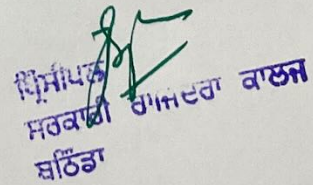 ਪ੍ਰਿੰਸੀਪਲ
ਸਰਕਾਰੀ ਰਾਜਿੰਦਰਾ ਕਾਲਜ
ਬਠਿੰਡਾ